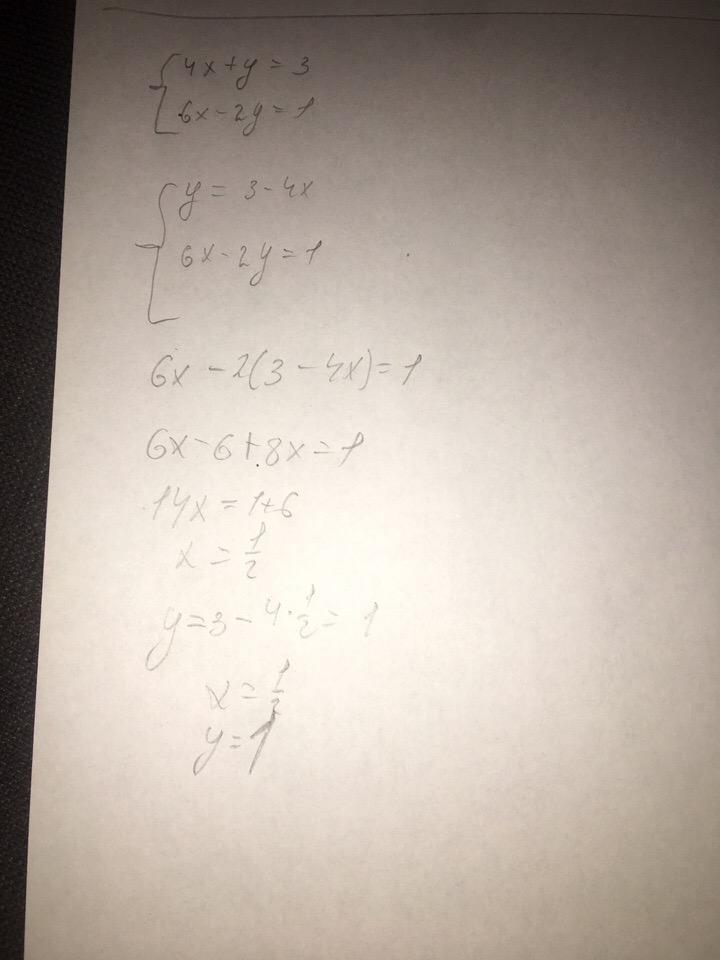 4x+y=3
6x-2y=1
y=3-4x
6x-2y=1
6x-2(3-4x)=1
6x-6+8x=1
14x=1+6
x=1/2
y=3-4·1/2=1
x=1/2
y=1